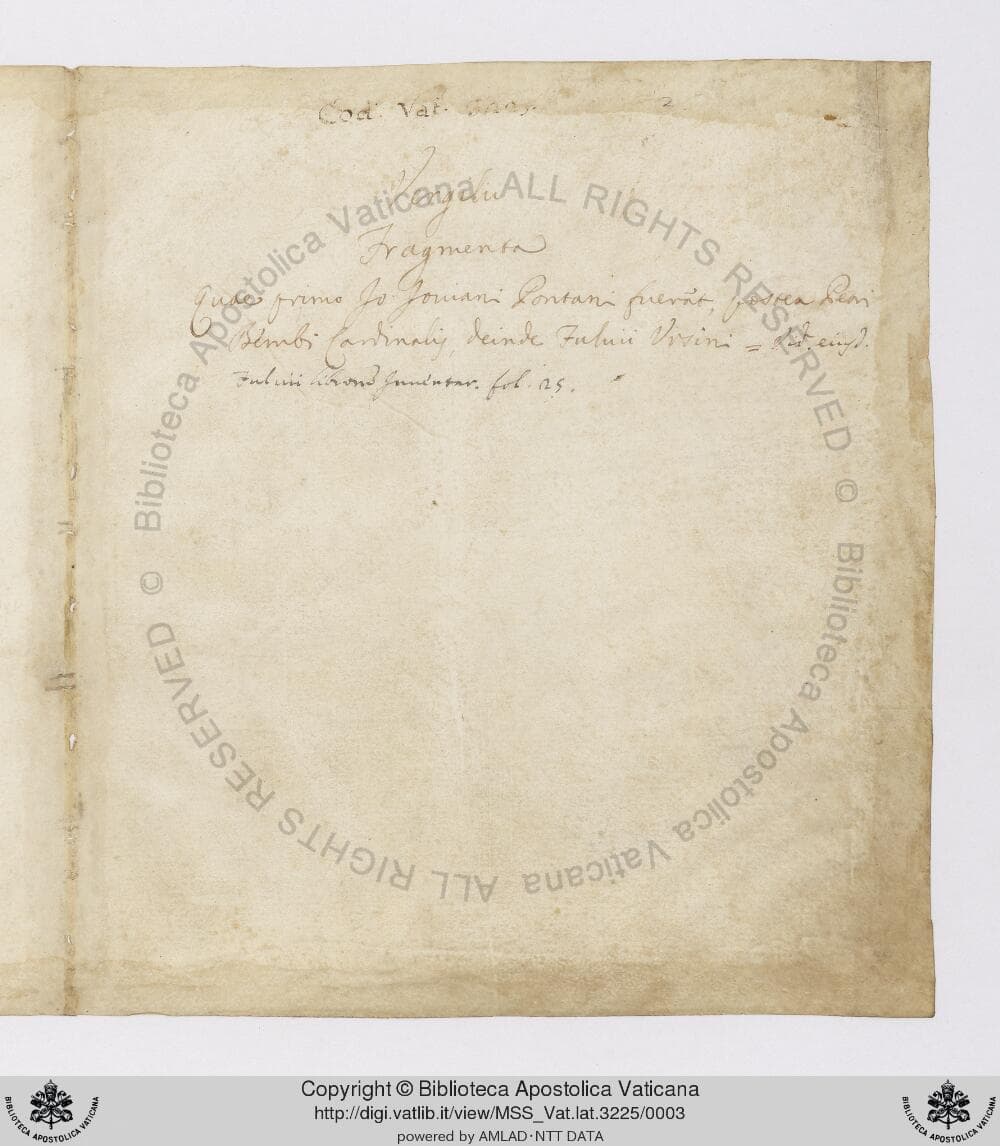 Cod. Vat. 3225. 2
Vergilii
Fragmenta
Quae primo Jo. Joviani Pontani fuerūt, postea Petri
Bembi Cardinalis, deinde Fulvii Ursini = Vid. eiusd.
Fulvii librorū Inventar. fol. 25.
© Biblioteca Apostolica Vaticana ALL RIGHTS RESERVED
© Biblioteca Apostolica Vaticana ALL RIGHTS RESERVED
BIBLIOTECA APOSTOLICA VATICANA
Copyright © Biblioteca Apostolica Vaticana
http://digi.vatlib.it/view/MSS_Vat.lat.3225/0003
powered by AMLAD·NTT DATA
BIBLIOTECA APOSTOLICA VATICANA